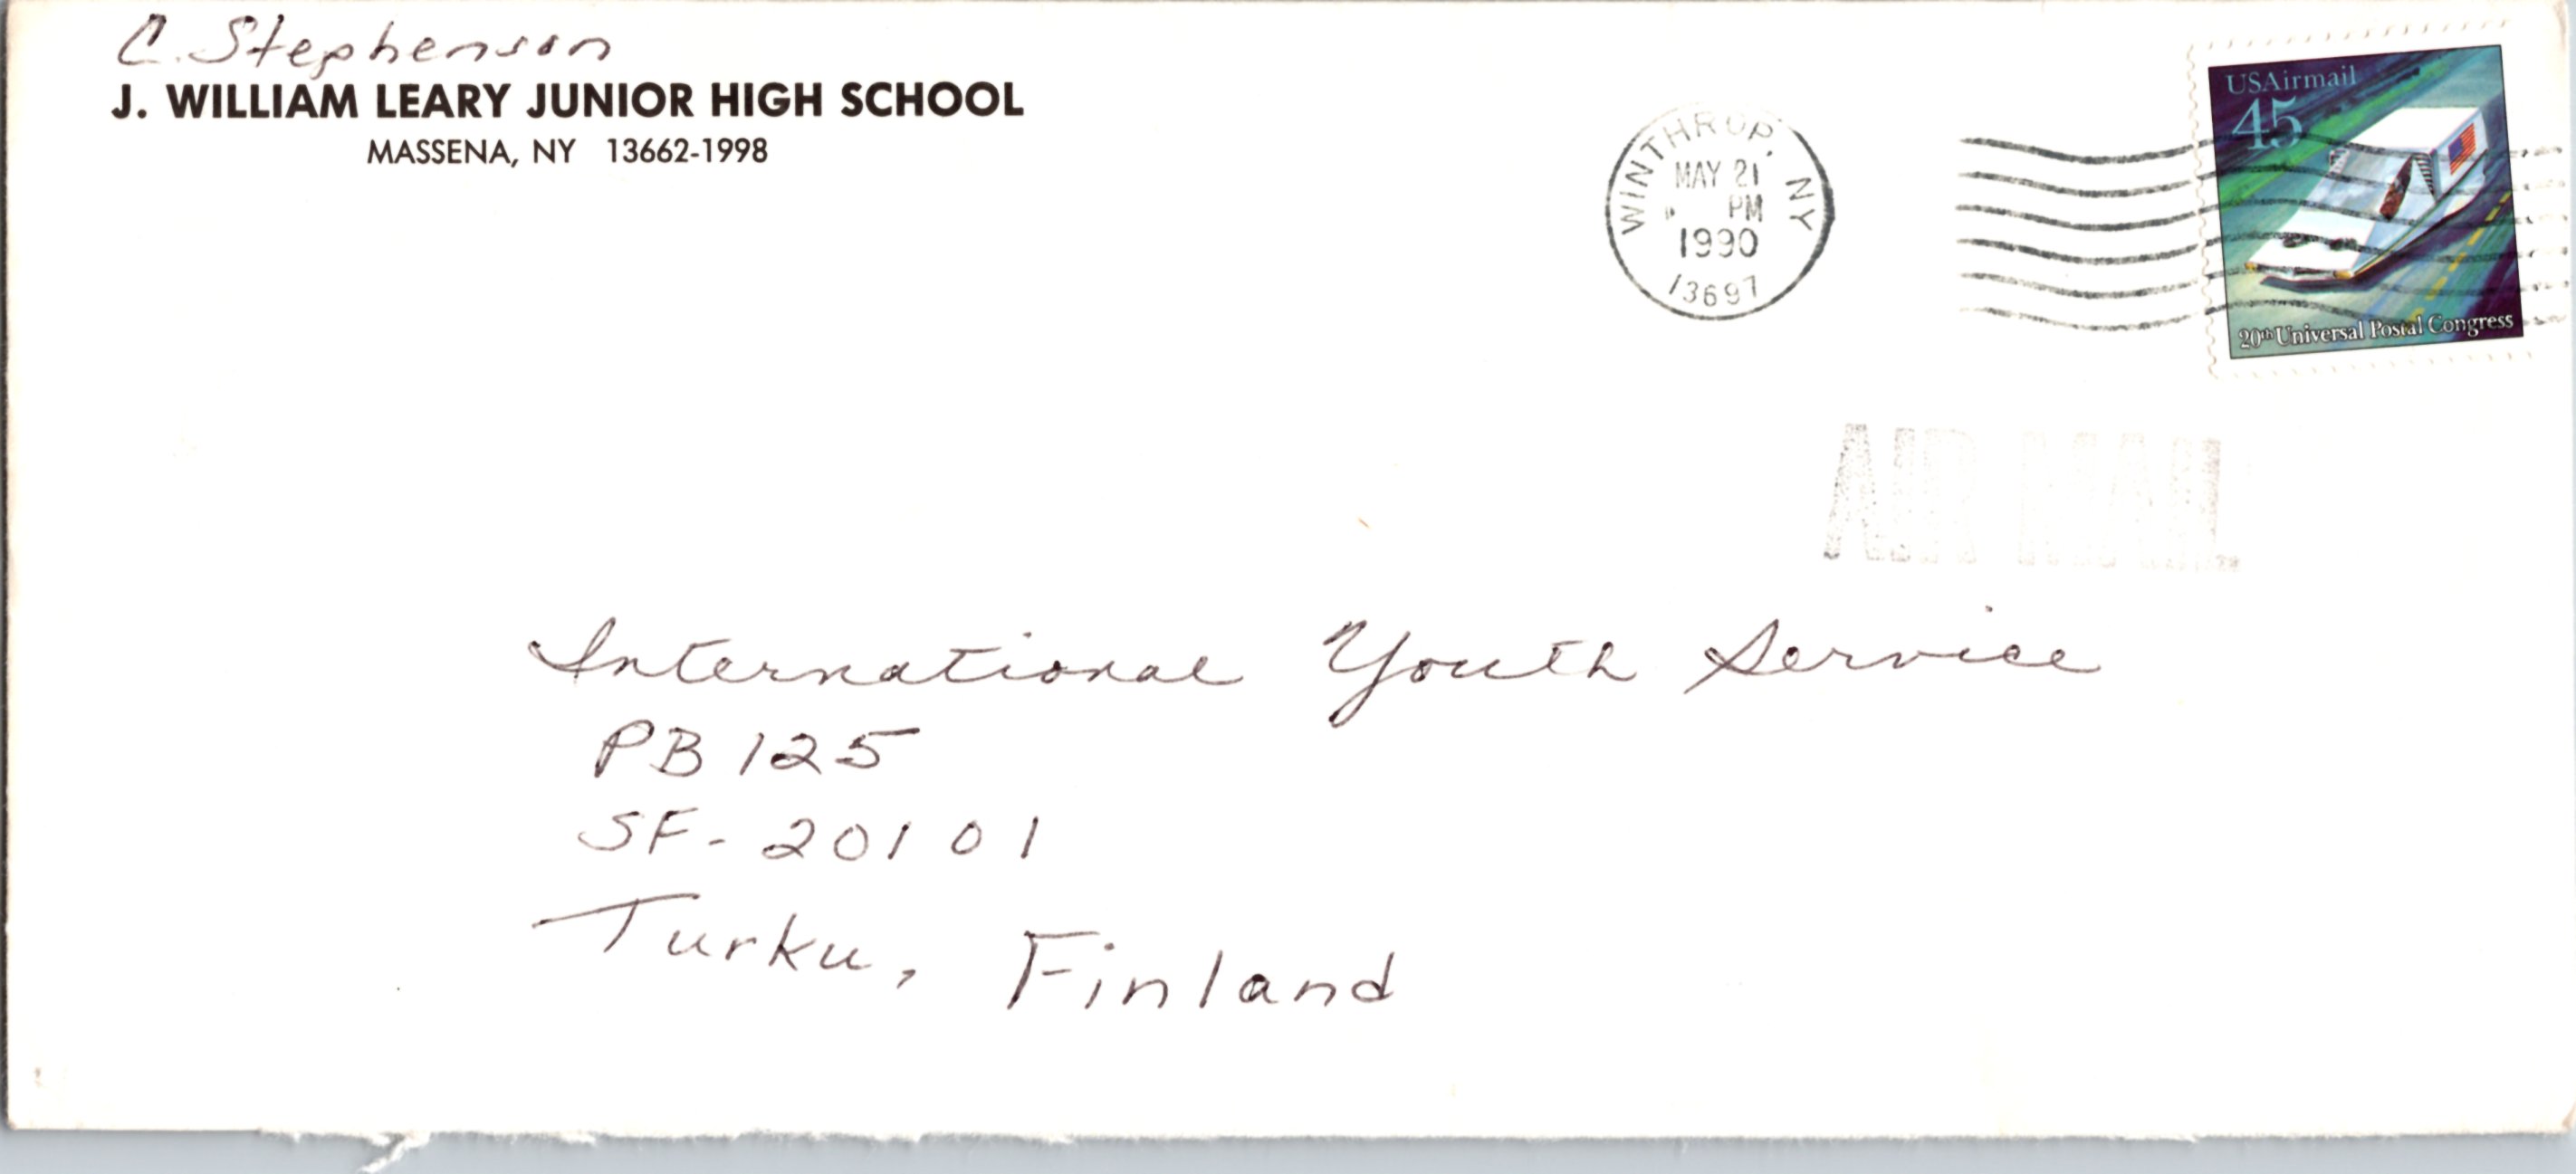 C. Stephenson
J. WILLIAM LEARY JUNIOR HIGH SCHOOL
MASSENA, NY 13662-1998
WINTHROP, NY
MAY 21
PM
1990
13697
USAirmail
45
20th Universal Postal Congress
AIR MAIL
International Youth Service
PB 125
SF-20101
Turku, Finland